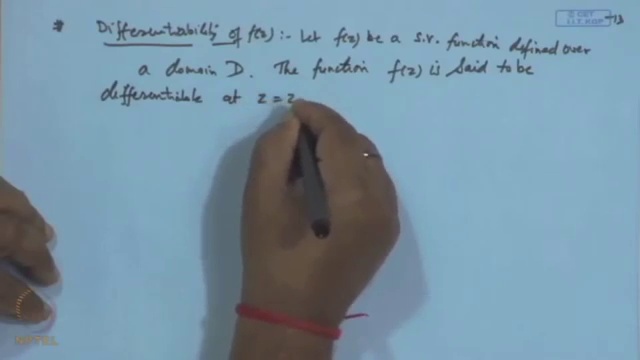 # Differentiability of f(z) :- Let f(z) be a s.v. function defined over
a domain D. The function f(z) is said to be
differentiable at z = z
© CET
I.I.T. KGP
NPTEL